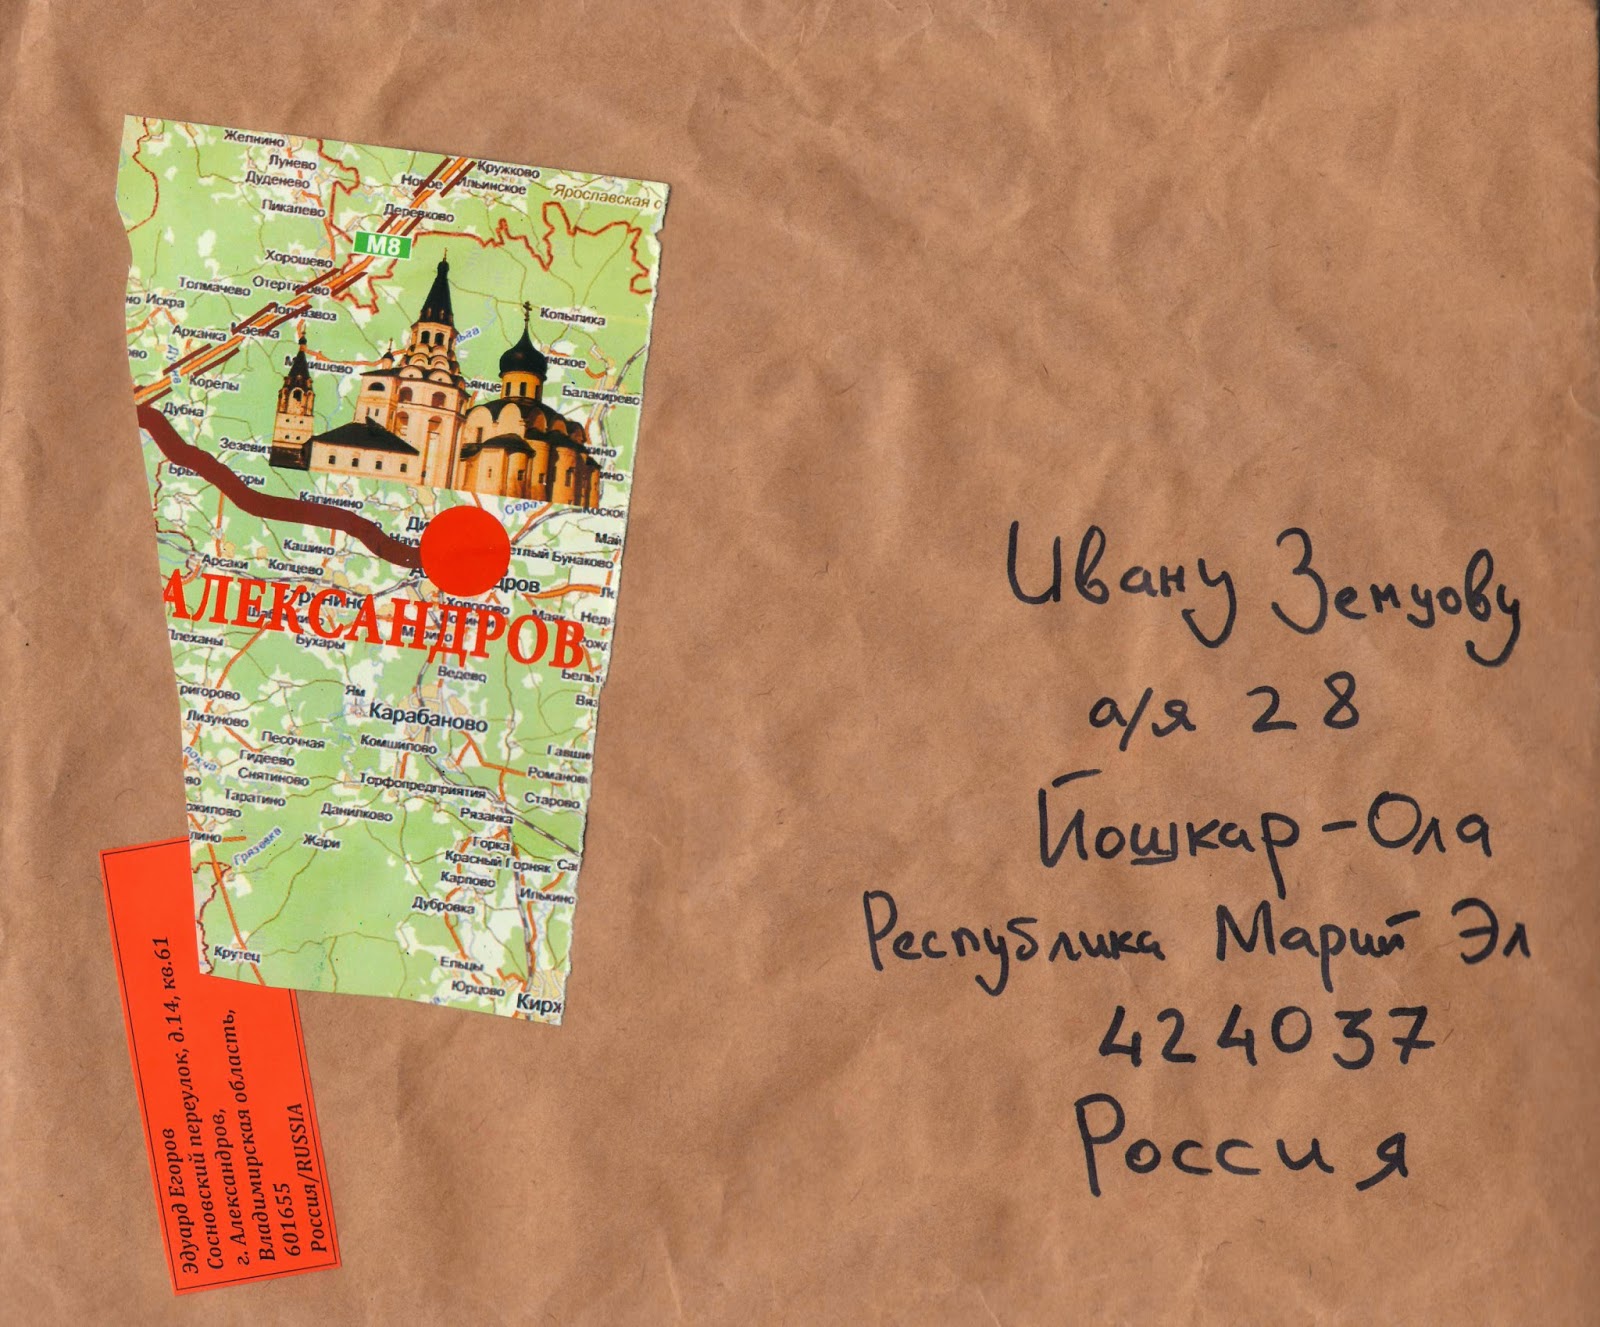 Желнино
Лунево
Дуденево
Пикалево
Кружково
Новое Ильинское
Ярославская о
Деревково
М8
Хорошево
Толмачево
Искра
Архангка
Маевка
Корелы
Дубна
Копылиха
Балакирево
Калинино
Кашино
Арсаки
Копцево
Бунаково
АЛЕКСАНДРОВ
Плеханы
Бухары
Маяк
Ведево
Ям
Карабаново
Лизуново
Песочная
Комшилово
Гидеево
Снятиново
Торфопредприятия
Старово
Таратино
Данилково
Рязанка
Жари
Грязевка
Горка
Красный Горняк
Карпово
Илькино
Дубровка
Крутец
Ельцы
Юрцово
Кирж
Эдуард Егоров
Сосновский переулок, д.14, кв.61
г. Александров,
Владимирская область,
601655
Россия/RUSSIA
Ивану Земцову
а/я 28
Йошкар-Ола
Республика Марий Эл
424037
Россия